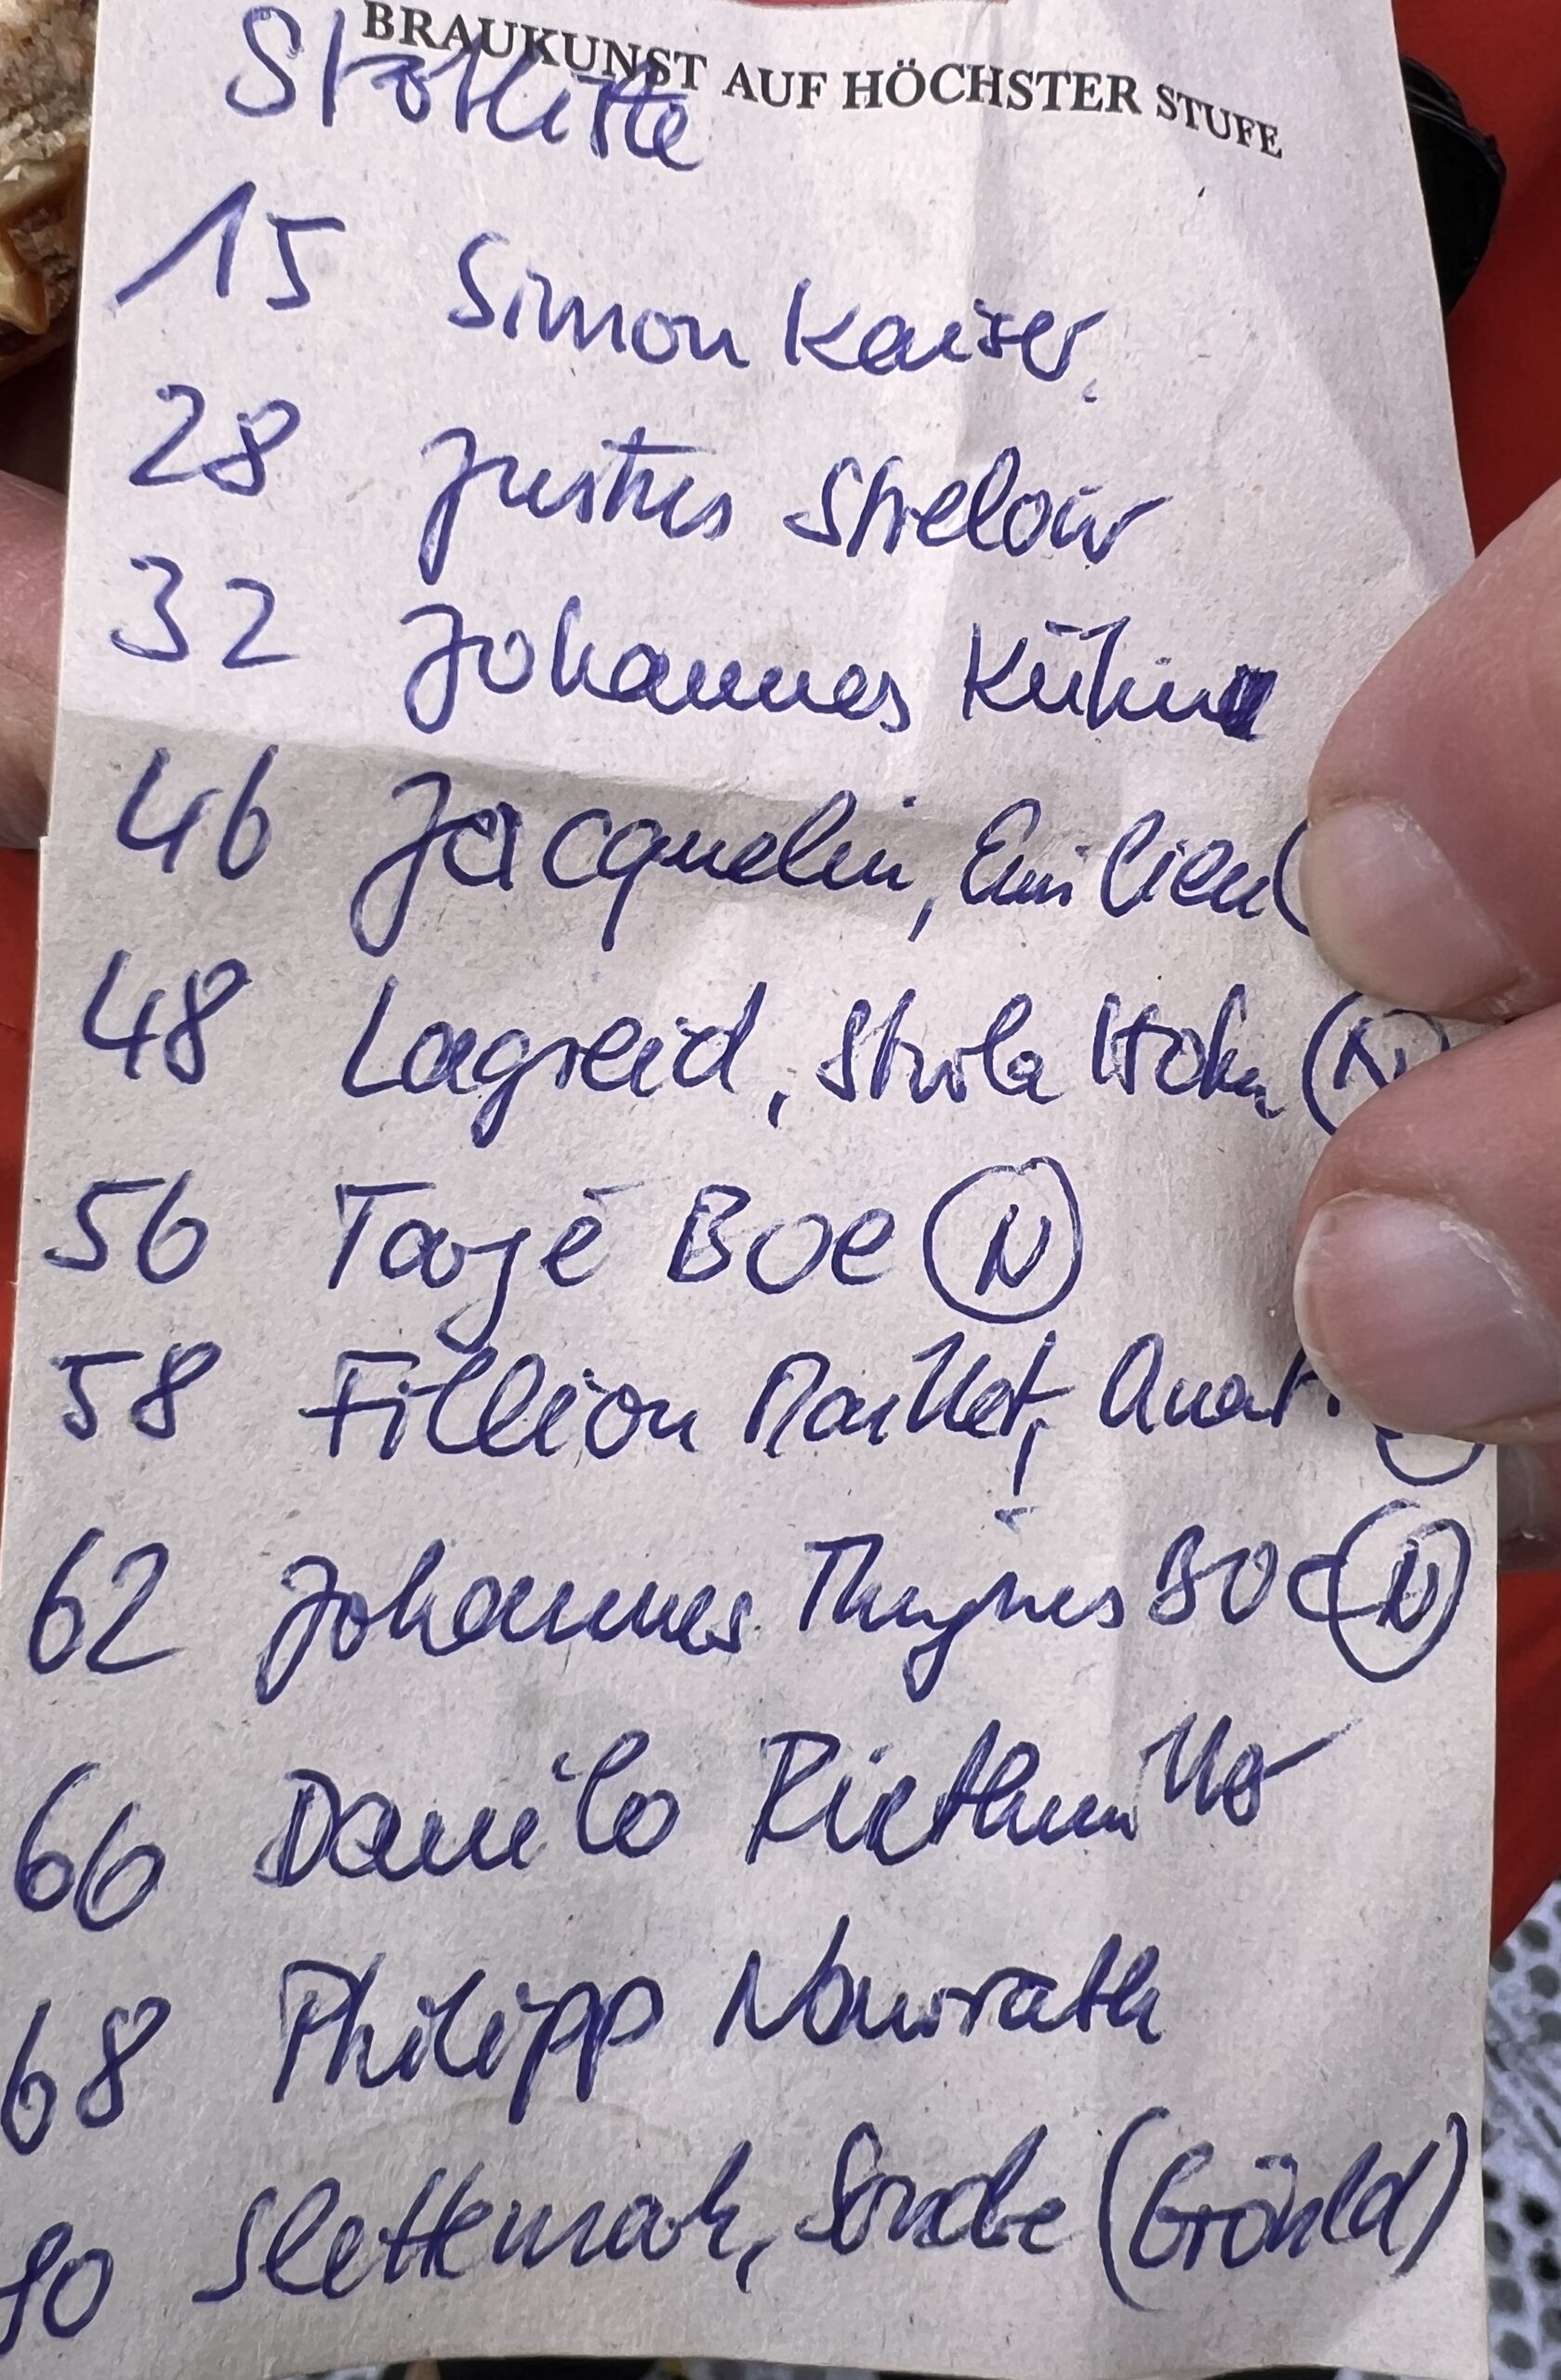 BRAUKUNST AUF HÖCHSTER STUFE
Startliste
15 Simon Kaiser
28 Justus Strelow
32 Johannes Kühn
46 Jacquelin, Emilien (
48 Lagreid, Sturla Holm (N)
56 Tarjé Boe (N)
58 Fillion Maillet, Quent
62 Johannes Thignes BOE (N)
66 Danilo Riethmüller
68 Philipp Nawrath
90 Slettemark, Sondre (Grönld)